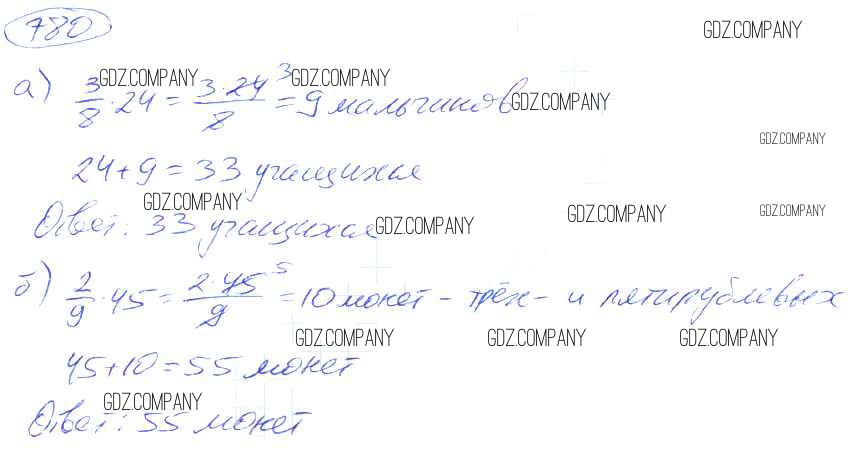 780
GDZ.COMPANY
а) 3/8 · 24 = 3·24/8 ³ = 9 мальчиков
GDZ.COMPANY GDZ.COMPANY GDZ.COMPANY
GDZ.COMPANY
24+9 = 33 учащихся
GDZ.COMPANY GDZ.COMPANY GDZ.COMPANY
Ответ: 33 учащихся
GDZ.COMPANY
б) 2/9 · 45 = 2·45/9 ⁵ = 10 монет - трёх- и пятирублёвых
GDZ.COMPANY GDZ.COMPANY GDZ.COMPANY
45+10 = 55 монет
GDZ.COMPANY
Ответ: 55 монет